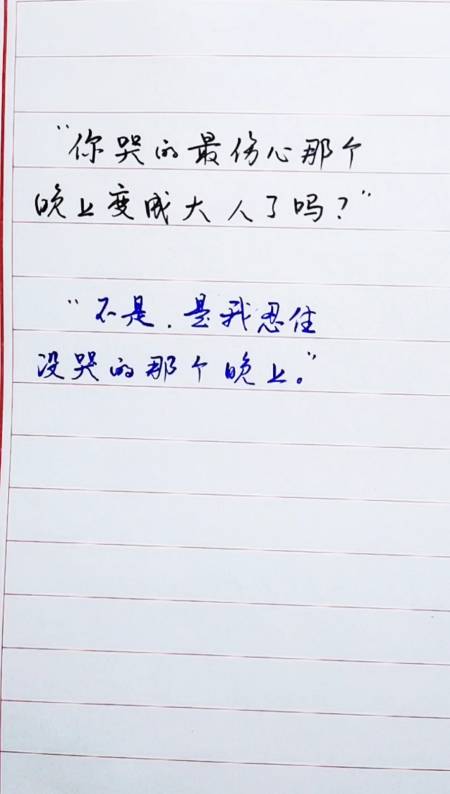 “你哭的最伤心那个
晚上变成大人了吗？”
“不是.是我忍住
没哭的那个晚上。”